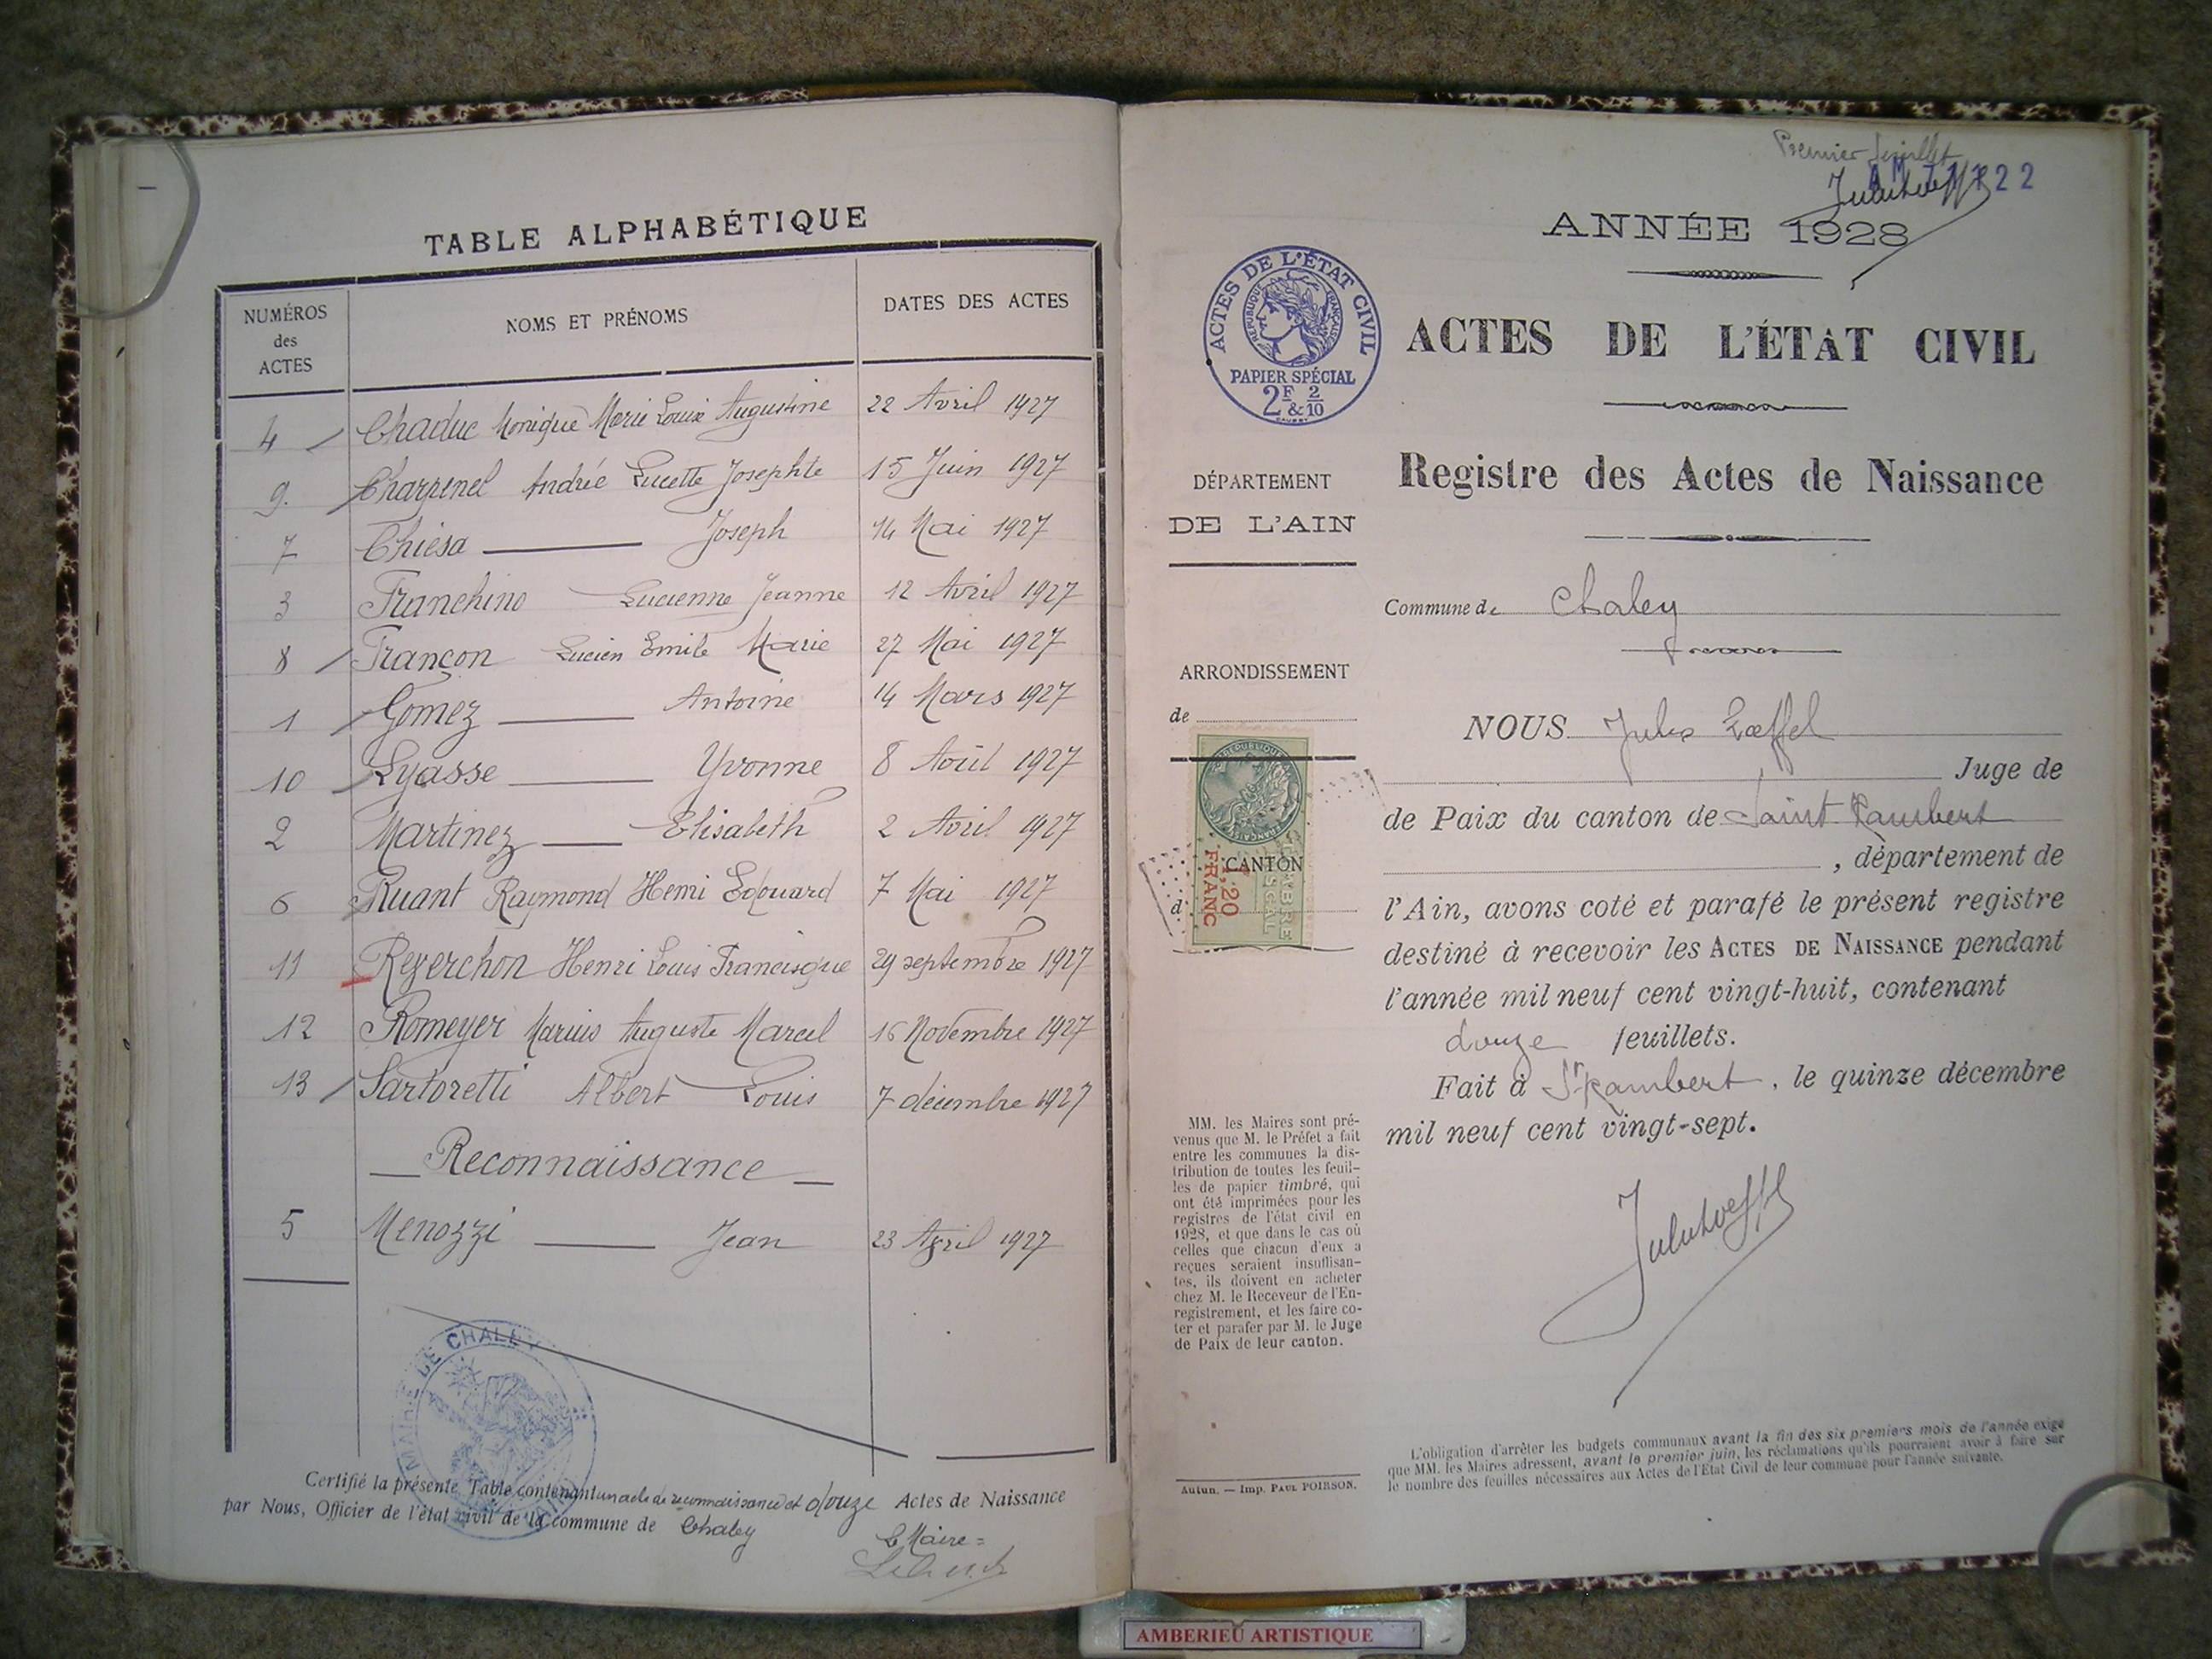 TABLE ALPHABÉTIQUE
NUMÉROS des ACTES NOMS ET PRÉNOMS DATES DES ACTES
4 Chaduc Monique Marie Louise Augustine 22 Avril 1927
9. Charpenel Andrée Lucette Josephte 15 Juin 1927
7 Chiésa Joseph 14 Mai 1927
3 Franchino Lucienne Jeanne 12 Avril 1927
8 Françon Lucien Emile Marie 27 Mai 1927
1 Gomez Antoine 14 Mars 1927
10 Lyasse Yvonne 8 Août 1927
2 Martinez Elisabeth 2 Avril 1927
6 Ruant Raymond Henri Edouard 7 Mai 1927
11 Reverchon Henri Louis Francisque 29 septembre 1927
12 Romeyer Marius Auguste Marcel 16 Novembre 1927
13 Sartoretti Albert Louis 7 décembre 1927
Reconnaissance
5 Menozzi Jean 23 Avril 1927
MAIRIE DE CHALEY
Certifié la présente Table contenant un acte de reconnaissance et douze Actes de Naissance
par Nous, Officier de l'état civil de la commune de Chaley
Le Maire =
Premier feuillet
22
ANNÉE 1928
ACTES DE L'ÉTAT CIVIL
RÉPUBLIQUE FRANÇAISE
PAPIER SPÉCIAL
2F & 2/10
ACTES DE L'ÉTAT CIVIL
Registre des Actes de Naissance
DÉPARTEMENT
DE L'AIN
Commune de Chaley
ARRONDISSEMENT
de
CANTON
d
1,20
FRANC
NOUS Jules Lœffel
Juge de
de Paix du canton de Saint Rambert
, département de
l'Ain, avons coté et parafé le présent registre
destiné à recevoir les ACTES DE NAISSANCE pendant
l'année mil neuf cent vingt-huit, contenant
douze feuillets.
Fait à St Rambert, le quinze décembre
mil neuf cent vingt-sept.
MM. les Maires sont pré-
venus que M. le Préfet a fait
entre les communes la dis-
tribution de toutes les feuil-
les de papier timbré, qui
ont été imprimées pour les
registres de l'état civil en
1928, et que dans le cas où
celles que chacun d'eux a
reçues seraient insuffisan-
tes, ils doivent en acheter
chez M. le Receveur de l'En-
registrement, et les faire co-
ter et parafer par M. le Juge
de Paix de leur canton.
Autun. — Imp. PAUL POIRSON.
L'obligation d'arrêter les budgets communaux avant la fin des six premiers mois de l'année exige
que MM. les Maires adressent, avant le premier juin, les réclamations qu'ils pourraient avoir à faire sur
le nombre des feuilles nécessaires aux Actes de l'Etat Civil de leur commune pour l'année suivante.
AMBERIEU ARTISTIQUE